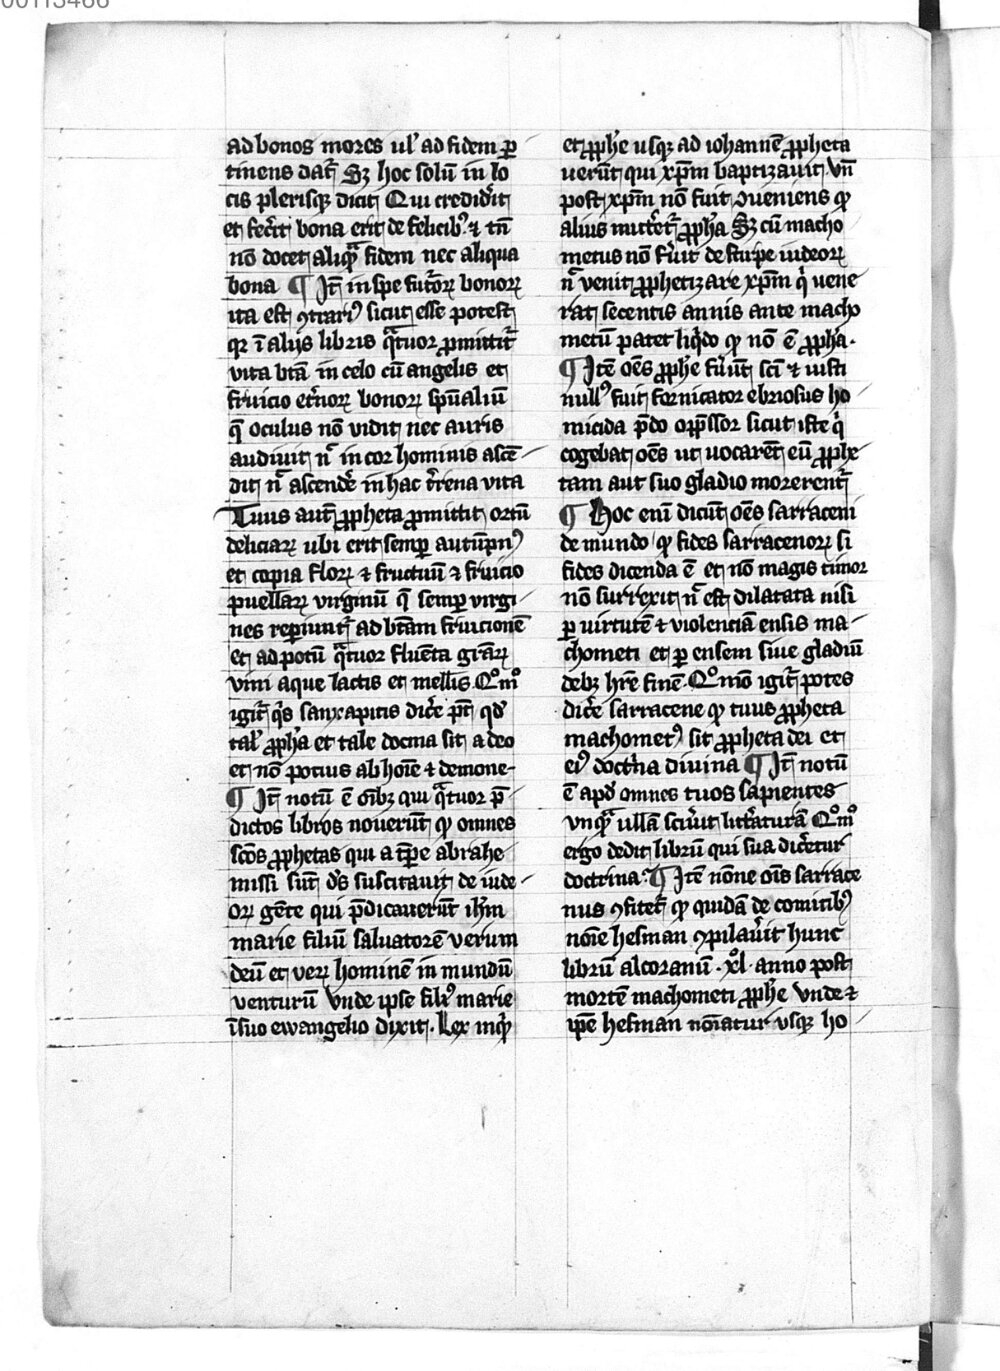 00113466
ad bonos mores ul' ad fidem p̱
tinens dat᷑ Sꝫ hoc solū in lo
cis plerisqꝫ dicit Qui credidit
et fec̄it bona erit de felicibꝰ ⁊ tn̄
nō docet aliquaᷓ fidem nec aliqua
bona ¶ Itē in spe futoꝝ bonoꝝ
ita est ꝯtrariꝰ sicut esse potest
qꝛ ī alijs libris qᵃtuor ꝓmittit᷑
vita btā in celo cū angelis et
fruicio et̄noꝝ bonoꝝ spūaliū
q̄ oculus nō vidit nec auris
audiuit nͨ in cor hominis ascē-
dit nͨ ascende᷑ in hac t̄rena vita
Tuus aut̄ ꝓpheta ꝓmittit ortū
deliciaꝝ ubi erit semꝑ autūpnꝰ
et copia floꝝ ⁊ fructuū ⁊ fruicio
puellaꝝ virginū q̄ semꝑ virgi-
nes reperiunt᷑ ad btām fruicionē
et ad potū qᵃtuor fluēta graꝝ
vini aque lactis et mellis. Qᵒmͦ
igit᷑ qⁱs sane capitis dic̄e pt̄ qđ
tal' ꝓpha et tale docma sit a deo
et nō potius ab hoīe ⁊ demone-
¶ Itē notū ē oībꝫ qui qᵃtuor p̄-
dictos libros nouerūt qꝫ omnes
scōs ꝓphetas qui a tp̄e abrahe
missi sūt ds̄ suscitauit de iude-
oꝝ gēte qui p̄dicauerūt ihm̄
marie filiū saluatorē verum
deū et veꝝ hominē in mundū
venturū Vnde ipse filiꝰ marie
ī suo ewangelio dixit. Lex inqͥ
et ꝓphe usqꝫ ad iohannē ꝓpheta
uerūt qui xp̄m baptizauit. Vn̄
post xp̄m nō fuit ꝯueniens ꝙ
alius mitt̄et᷑ ꝓpha Sꝫ cū macho
metus nō fūit de stirpe iudeoꝝ
nͨ venit ꝓphetizare xp̄m qͥ uene
rat secentis annis ante macho
metū patet liqͥdo ꝙ nō ē ꝓpha.
¶ Itē oēs ꝓphe fūut scī ⁊ iusti
nullꝰ fuit fornicator ebriosus ho
micida p̄do opp̄ssor sicut iste qͥ
cogebat oēs ut uocarēt eū ꝓphe-
tam aut suo gladio morerent᷑
¶ Hoc enī dicūt oēs sarraceni
de mundo ꝙ fides sarracenoꝝ si
fides dicenda ē et nō magis timor
nō surrexit nͨ est dilatata nisi
ꝑ uirtutē ⁊ violenciā ensis ma-
chometi et ꝑ ensem siue gladiū
debꝫ hr̄e finē. Qᵒmō igit᷑ potes
dic̄e sarracene ꝙ tuus ꝓpheta
machometꝰ sit ꝓpheta dei et
eiꝰ doctⁱna diuina ¶ Itē notū
ē apđ omnes tuos sapientes
vnqᵃ ullā sciūt litt̄aturā Qᵒmͦ
ergo dedit librū qui sua dic̄etur
doctrina. ¶ Itē nōne oīs sarrace
nus ꝯfitet᷑ ꝙ quidā de comitibꝰ
noīe hesman ꝯpilauit hunc
librū alcoranū .xͦl. anno post
mortē machometi ꝓphe Vnde ⁊
ip̄e hesman noīatur vsqꝫ ho